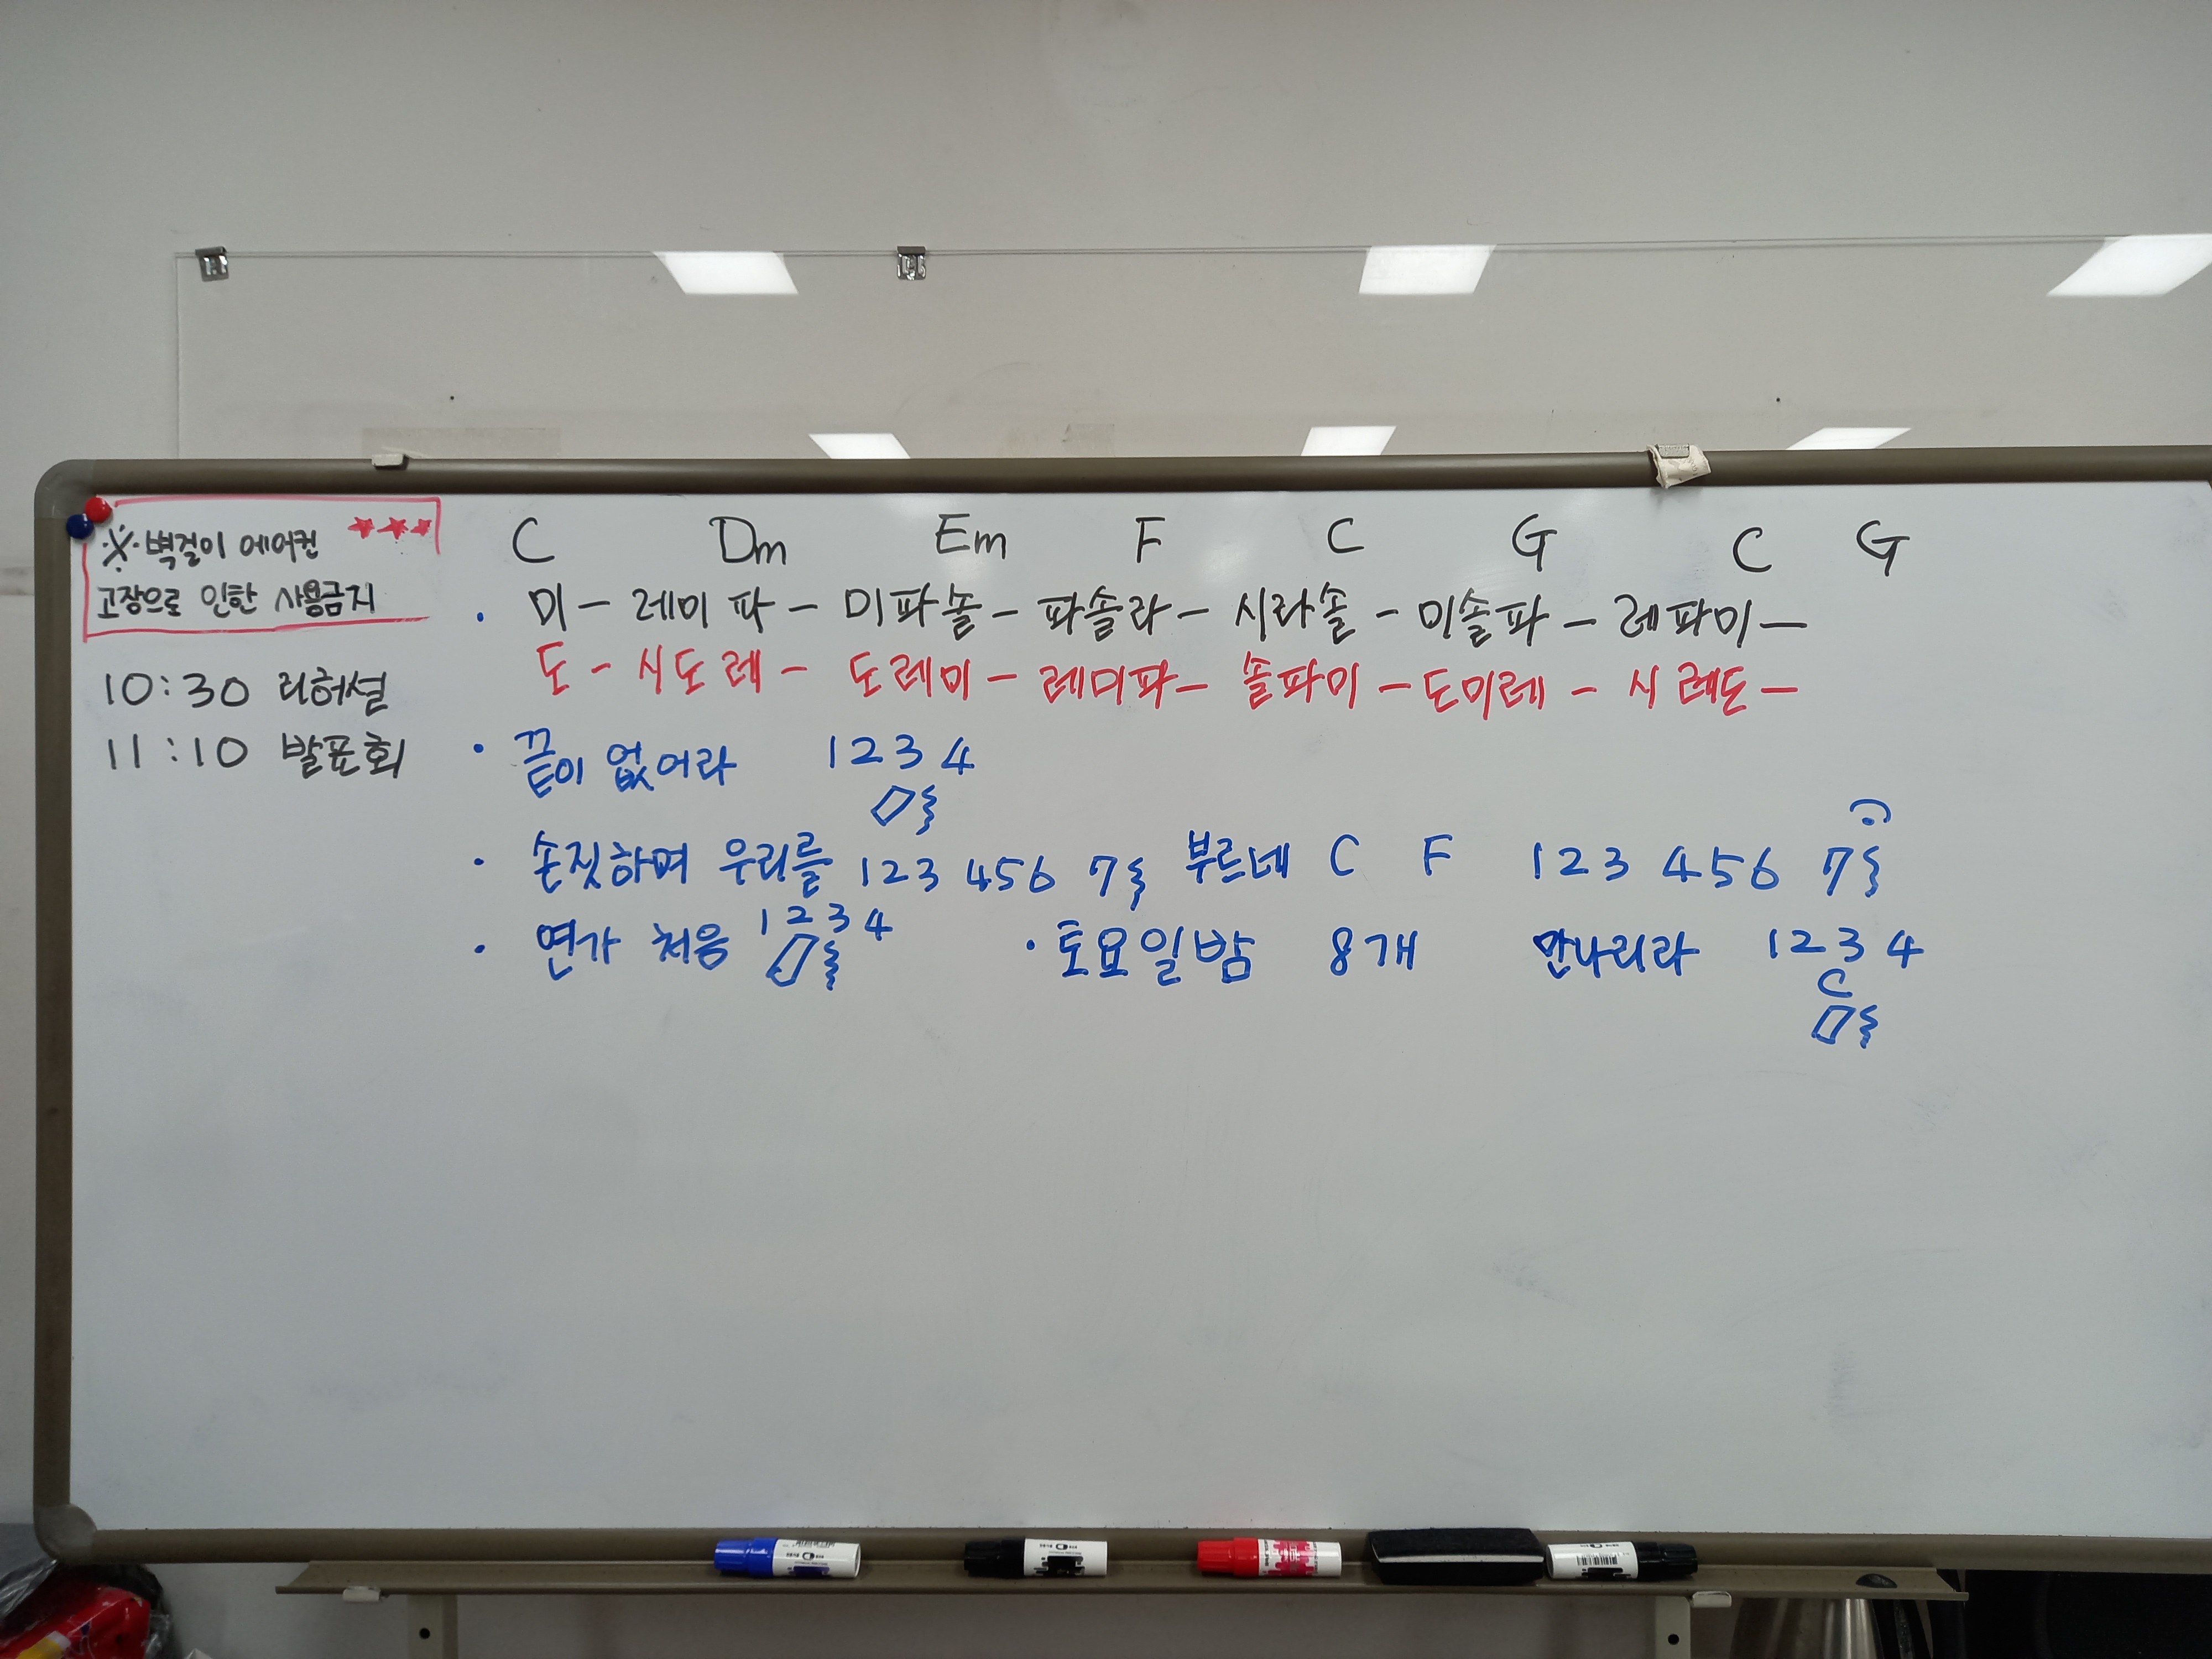 ※ 벽걸이 에어컨 ★★★
고장으로 인한 사용금지
10:30 리허설
11:10 발표회
C Dm Em F C G C G
· 미 – 레미파 – 미파솔 – 파솔라 – 시라솔 – 미솔파 – 레파미 –
도 – 시도레 – 도레미 – 레미파 – 솔파미 – 도미레 – 시레도 –
· 끝이 없어라 1 2 3 4
· 손짓하며 우리를 123 456 7 부르네 C F 123 456 7
· 연가 처음 1 2 3 4 · 토요일밤 8개 만나리라 1 2 3 4
C